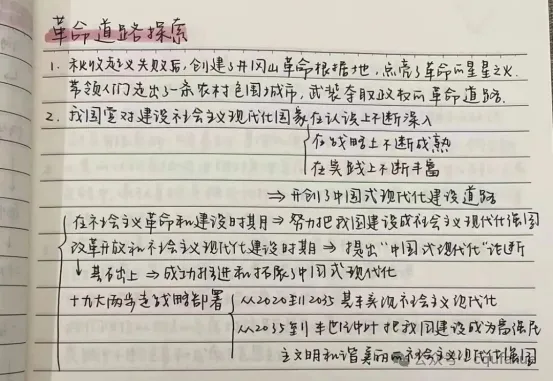 革命道路探索
1. 秋收起义失败后,创建了井冈山革命根据地,点亮了革命的星星之火.
带领人们走出了一条农村包围城市,武装夺取政权的革命道路.
2. 我国党对建设社会主义现代化国家在认识上不断深入
在战略上不断成熟
在实践上不断丰富
⇒ 开创了中国式现代化建设道路
在社会主义革命和建设时期 ⇒ 努力把我国建设成社会主义现代化强国
改革开放和社会主义现代化建设时期 ⇒ 提出"中国式现代化"论断
↓ 基础上 ⇒ 成功推进和拓展了中国式现代化
十九大两步走战略部署 从2020到2035 基本实现社会主义现代化
从2035到本世纪中叶 把我国建设成为富强民
主文明和谐美丽的社会主义现代化强国
公众号